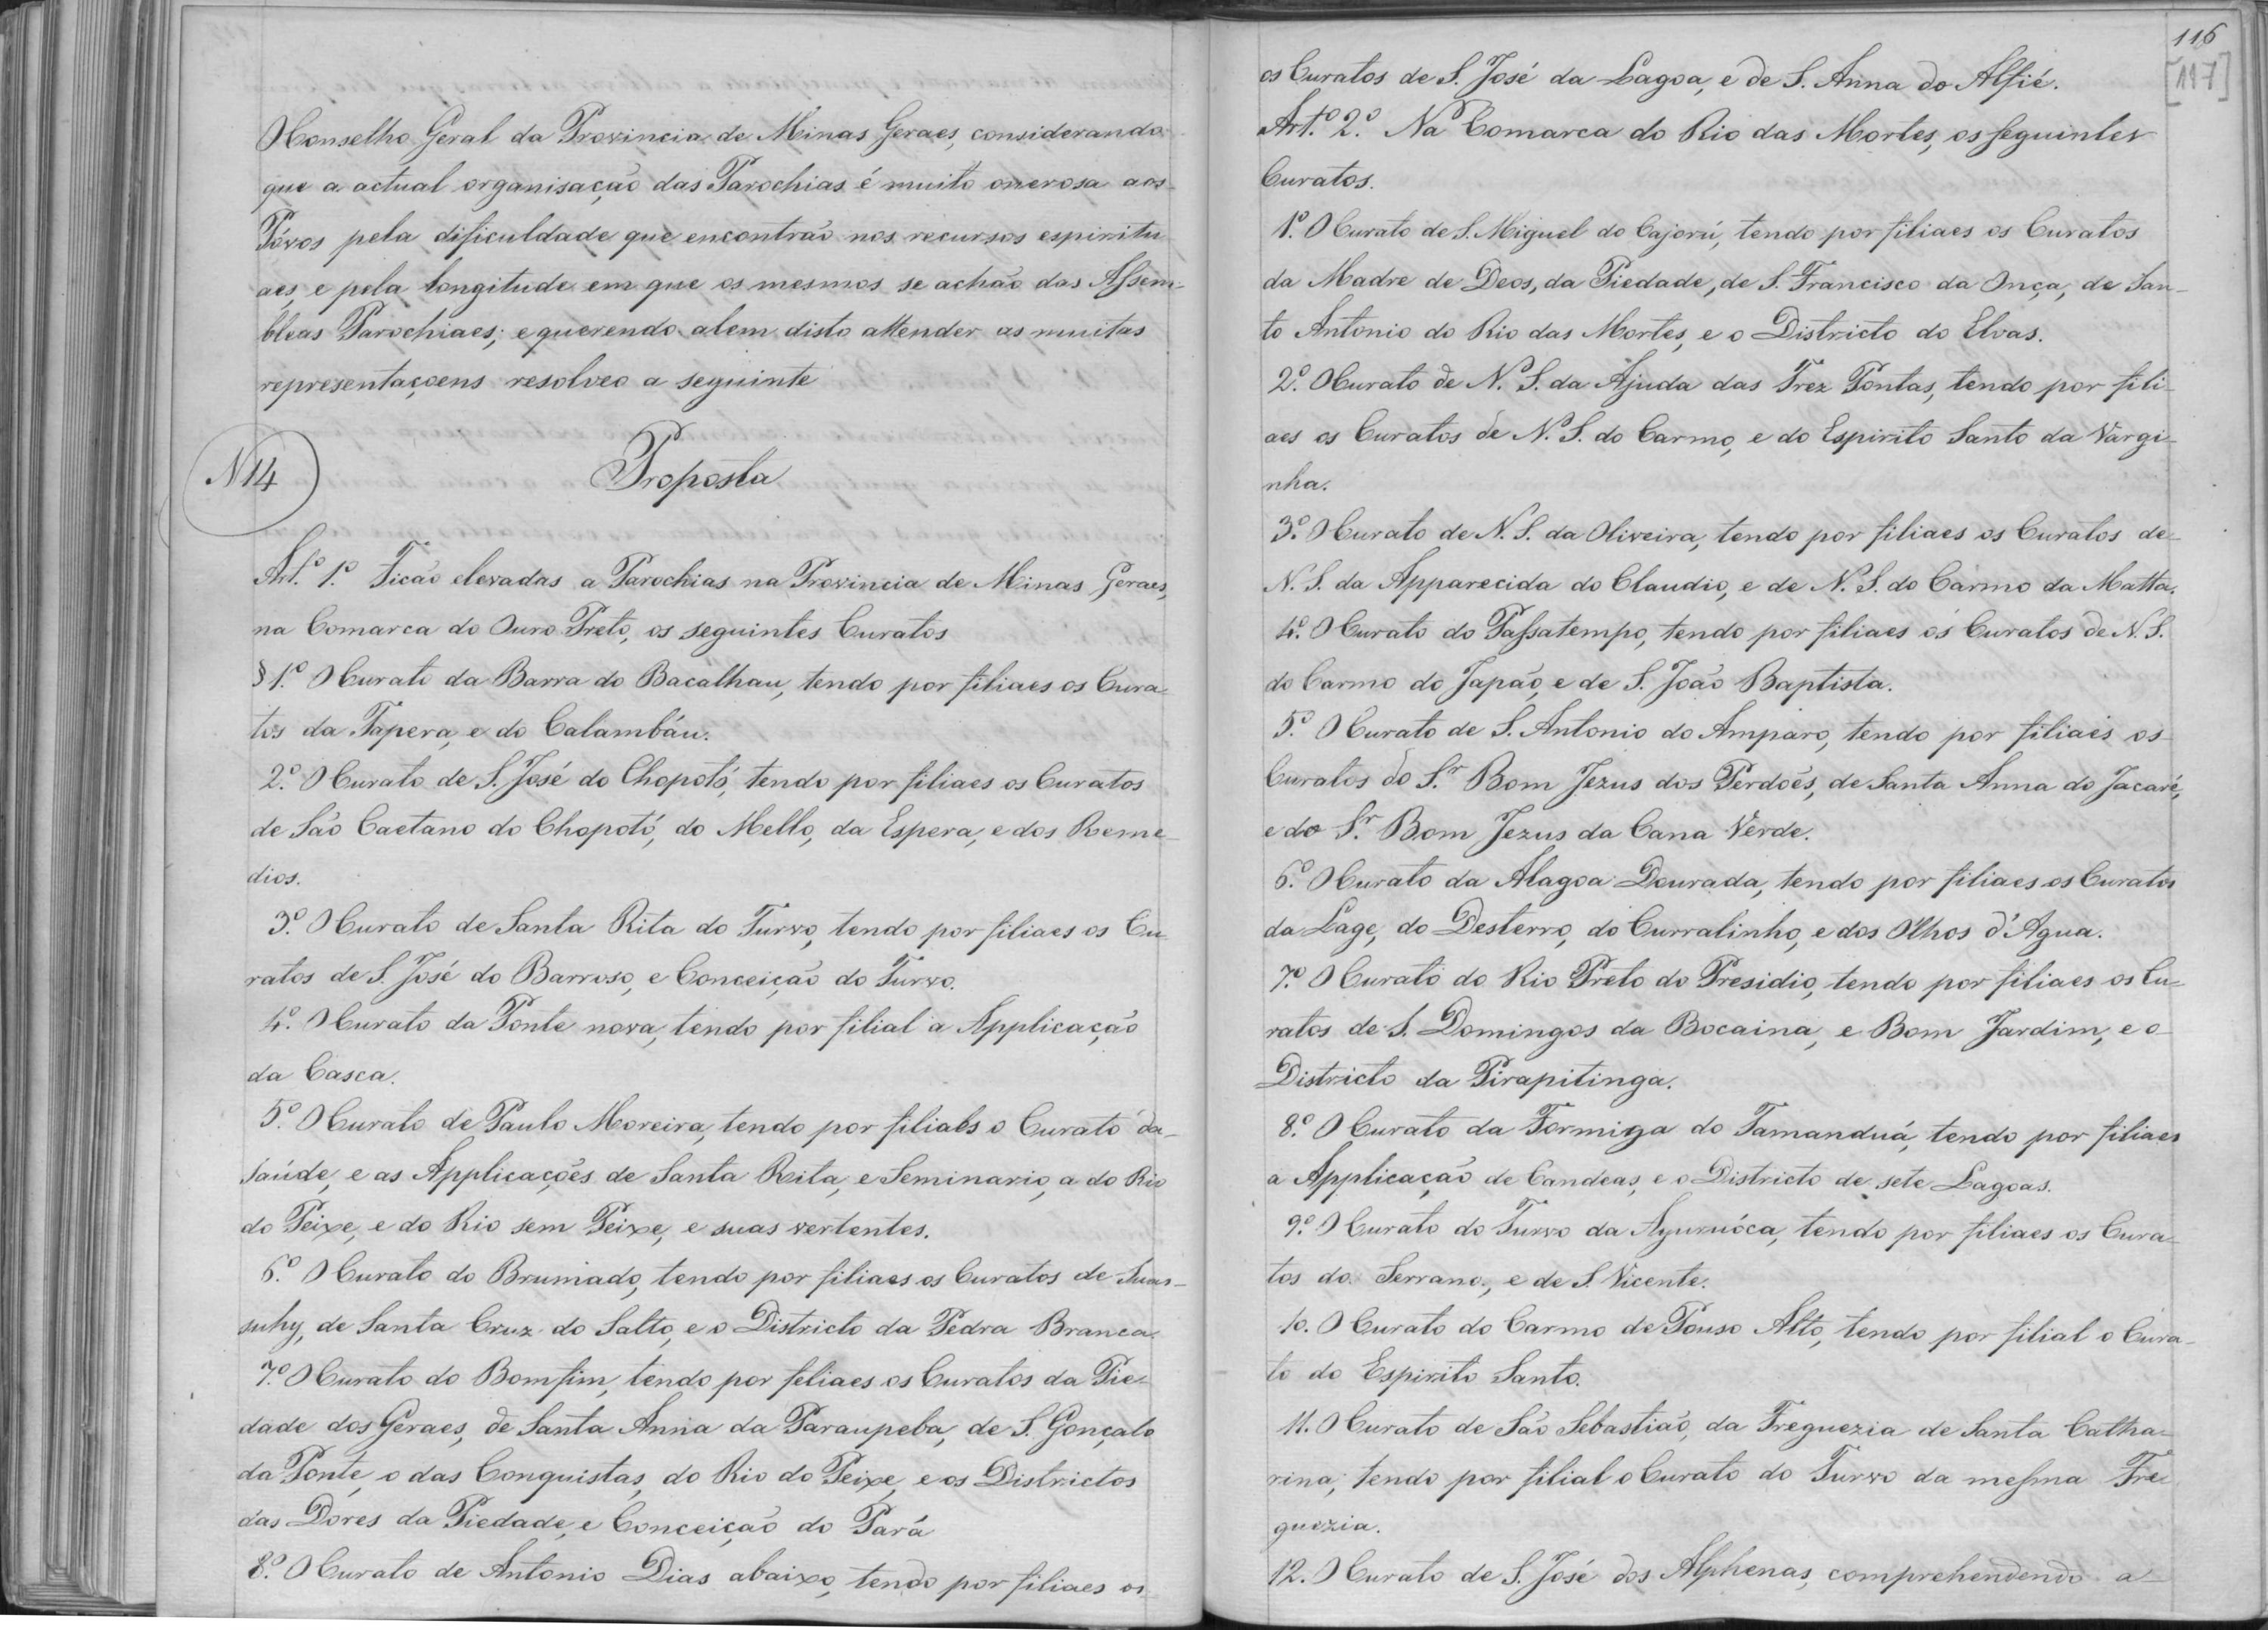 O Conselho Geral da Provincia de Minas Geraes, considerando
que a actual organisação das Parochias é muito onerosa aos
Póvos pela dificuldade que encontrão nos recursos espiritu
aes, e pela longitude em que os mesmos se achão das Assem-
bleas Parochiaes; e querendo alem disto attender as muitas
representaçoens resolveo a seguinte
N 14
Proposta
Art.º 1.º Ficão elevadas a Parochias na Provincia de Minas Geraes,
na Comarca do Ouro Preto, os seguintes Curatos
§ 1.º O Curato da Barra do Bacalhau, tendo por filiaes os Cura-
tos da Tapera, e do Calambáu.
2.º O Curato de S. José do Chopotó, tendo por filiaes os Curatos
de São Caetano do Chopotó, do Mello, da Espera, e dos Reme-
dios.
3.º O Curato de Santa Rita do Turvo, tendo por filiaes os Cu-
ratos de S. José do Barroso, e Conceição do Turvo.
4.º O Curato da Ponte nova, tendo por filial a Applicação
da Casca.
5.º O Curato de Paulo Moreira, tendo por filiaes o Curato da-
Saúde, e as Applicações de Santa Rita, e Seminario, a do Rio
do Peixe, e do Rio sem Peixe, e suas vertentes.
6.º O Curato do Brumado, tendo por filiaes os Curatos de Suas-
suhy, de Santa Cruz do Salto, e o Districto da Pedra Branca.
7.º O Curato do Bomfim, tendo por feliaes os Curatos da Pie-
dade dos Geraes, de Santa Anna da Paraupeba, de S. Gonçalo
da Ponte, o das Conquistas, do Rio do Peixe, e os Districtos
das Dores da Piedade, e Conceição do Pará
8.º O Curato de Antonio Dias abaixo, tendo por filiaes os
116
[117]
os Curatos de S. José da Lagoa, e de S. Anna do Alfié.
Art.º 2.º Na Comarca do Rio das Mortes, os seguintes
Curatos.
1.º O Curato de S. Miguel do Cajorú, tendo por filiaes os Curatos
da Madre de Deos, da Piedade, de S. Francisco da Onça, de San-
to Antonio do Rio das Mortes, e o Districto do Elvas.
2.º O Curato de N. S. da Ajuda das Trez Pontas, tendo por fili-
aes os Curatos de N. S. do Carmo, e do Espirito Santo da Vargi-
nha.
3.º O Curato de N. S. da Oliveira, tendo por filiaes os Curatos de-
N. S. da Apparecida do Claudio, e de N. S. do Carmo da Matta.
4.º O Curato do Passatempo, tendo por filiaes os Curatos de N. S.
do Carmo do Japão, e de S. João Baptista.
5.º O Curato de S. Antonio do Amparo, tendo por filiaes os
Curatos do S.r Bom Jezus dos Perdoēs, de Santa Anna do Jacaré,
e do S.r Bom Jezus da Cana Verde.
6.º O Curato da Alagoa Dourada, tendo por filiaes os Curatos
da Lage, do Desterro, do Curralinho, e dos Olhos d'Agua.
7.º O Curato do Rio Preto do Presidio, tendo por filiaes os Cu-
ratos de S. Domingos da Bocaina, e Bom Jardim, e o
Districto da Pirapitinga.
8.º O Curato da Formiga do Tamanduá, tendo por filiaes
a Applicação de Candeas, e o Districto de sete Lagoas.
9.º O Curato do Turvo da Ayuruóca, tendo por filiaes os Cura-
tos do Serrano, e de S. Vicente.
10. O Curato do Carmo de Pouso Alto, tendo por filial o Cura-
to do Espirito Santo.
11. O Curato de São Sebastião, da Freguezia de Santa Catha-
rina, tendo por filial o Curato do Turvo da mesma Fre-
guezia.
12. O Curato de S. José dos Alphenas, comprehendendo a-